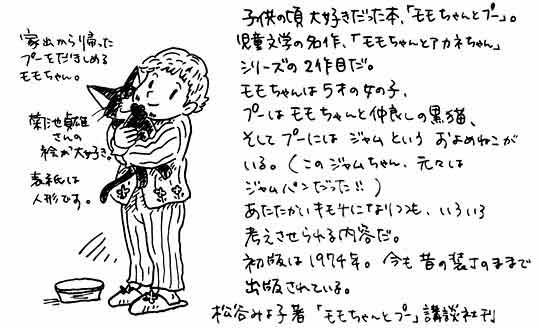 家出から帰った
プーをだきしめる
モモちゃん。
菊池貞雄
さんの
絵が大好き。
表紙は
人形です。
子供の頃大好きだった本、「モモちゃんとプー」。
児童文学の名作、「モモちゃんとアカネちゃん」
シリーズの2作目だ。
モモちゃんは5才の女の子、
プーはモモちゃんと仲良しの黒猫、
そしてプーにはジャムというおよめねこが
いる。(このジャムちゃん、元々は
ジャムパンだった!!)
あたたかいキモチになりつつも、いろいろ
考えさせられる内容だ。
初版は1974年。今も昔の装丁のままで
出版されている。
松谷みよ子著「モモちゃんとプー」講談社刊